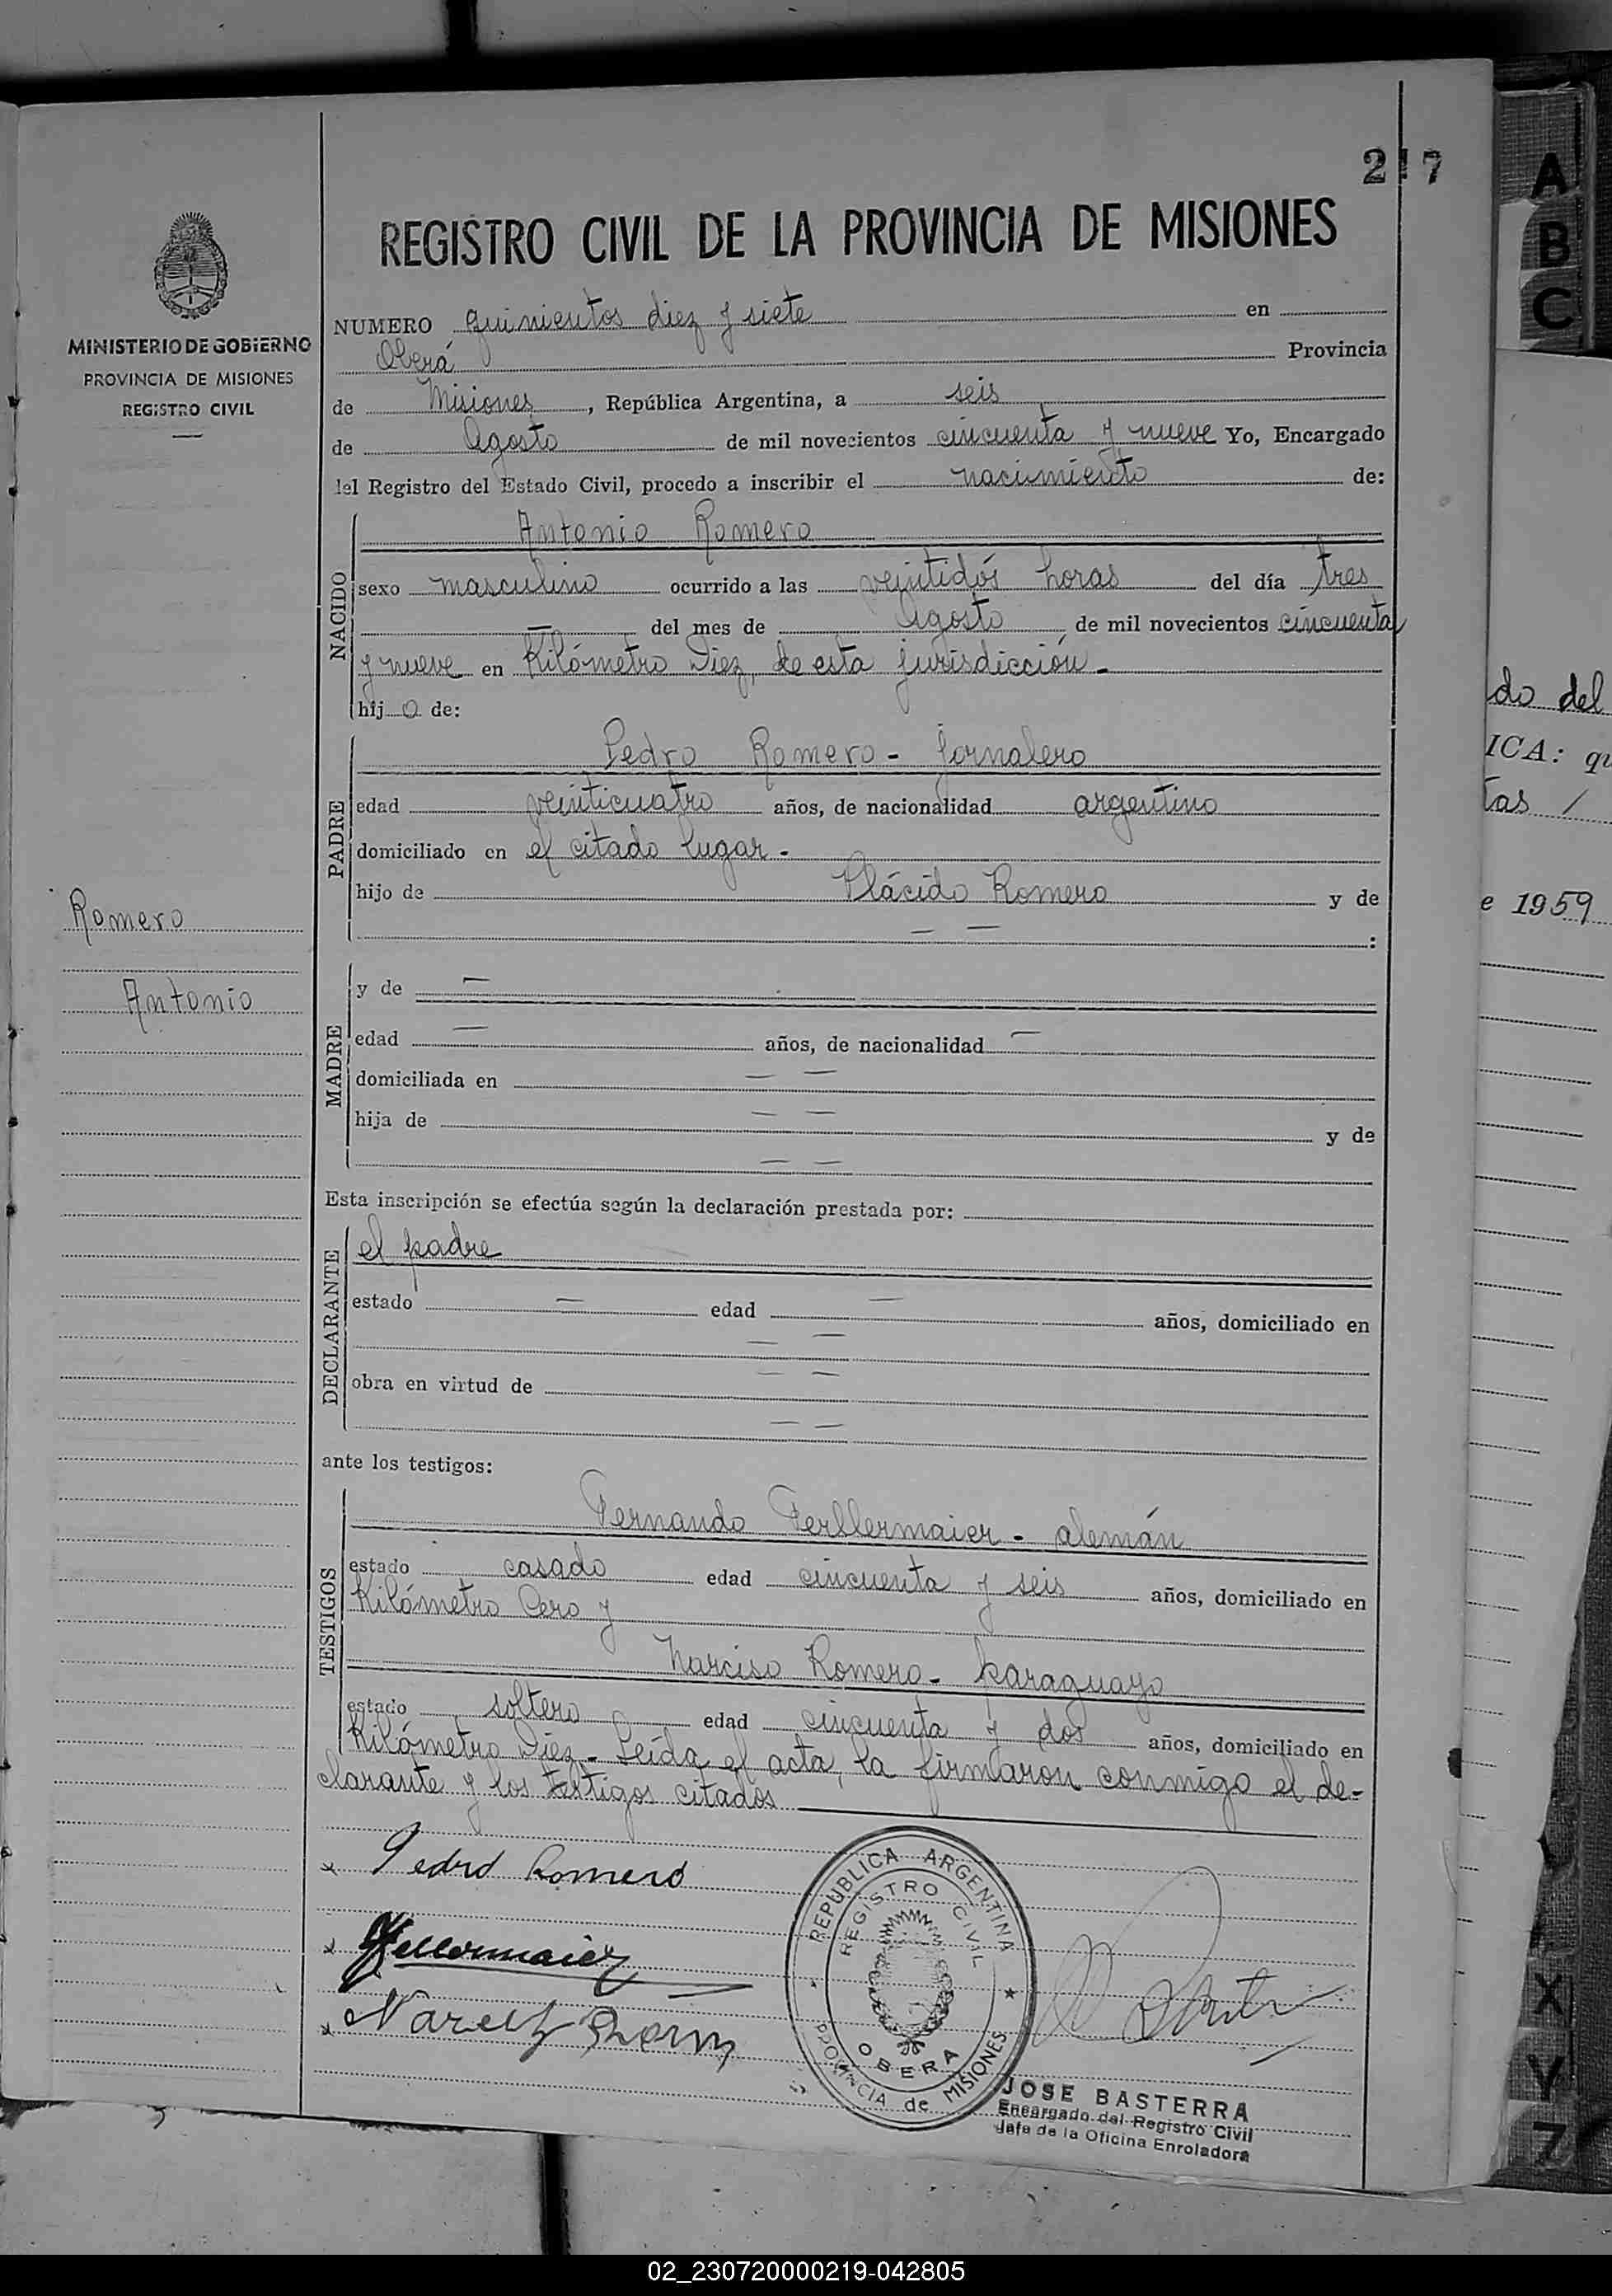 217
REGISTRO CIVIL DE LA PROVINCIA DE MISIONES
MINISTERIO DE GOBIERNO
PROVINCIA DE MISIONES
REGISTRO CIVIL
NUMERO quinientos diez y siete en
Oberá Provincia
de Misiones, República Argentina, a seis
de Agosto de mil novecientos cincuenta y nueve Yo, Encargado
del Registro del Estado Civil, procedo a inscribir el nacimiento de:
NACIDO
Antonio Romero
sexo masculino ocurrido a las veintidós horas del día tres
— del mes de Agosto de mil novecientos cincuenta
y nueve en Kilómetro Diez, de esta jurisdicción -
hijo de:
PADRE
Pedro Romero - jornalero
edad veinticuatro años, de nacionalidad argentino
domiciliado en el citado lugar -
hijo de Plácido Romero y de
— — :
Romero
Antonio
MADRE
y de —
edad — años, de nacionalidad —
domiciliada en — —
hija de — — y de
— —
Esta inscripción se efectúa según la declaración prestada por:
DECLARANTE
el padre
estado — edad — años, domiciliado en
— —
obra en virtud de — —
— —
ante los testigos:
TESTIGOS
Fernando Ferllermaier - alemán
estado casado edad cincuenta y seis años, domiciliado en
Kilómetro Cero y
Narciso Romero - paraguayo
estado soltero edad cincuenta y dos años, domiciliado en
Kilómetro Diez - Leída el acta, la firmaron conmigo el de-
clarante y los testigos citados
x Pedro Romero
x
x
REPUBLICA ARGENTINA
REGISTRO CIVIL
OBERA
PROVINCIA de MISIONES
JOSE BASTERRA
Encargado del Registro Civil
Jefe de la Oficina Enroladora
A
B
C
do del
ICA: qu
tas /
e 1959
X
Y
Z
02_230720000219-042805